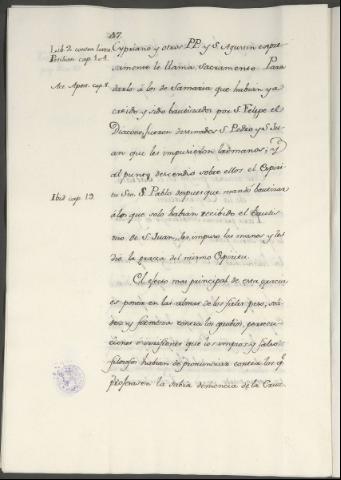 47.
Lib. 2. contra litter.
Petilian. cap. 104.
Act. Apost. cap. 8.
Ibid cap. 19.
Cypriano y otros PP. y S. Agustin expre-
samente le llama Sacramento. Para
darlo á los de Samaria que habian ya
creido y sido bautizados por S. Felipe el
Diacono, fueron S. Pedro y S. Ju-
an que les impusieron las manos, y
al punto descendio sobre ellos el Espiri-
tu Sto. S. Pablo despues que mandó bautizar
á los que solo habian recibido el Bautis-
mo de S. Juan, les impuso las manos y les
dio la gracia del mismo Espiritu.
El efecto mas principal de esta gracia
es poner en las almas de los fieles
y contra los
ciones é irrisiones que los impios y falsos
filosofos habian de pronunciar contra los q.e
profesasen la sabia demencia de la Cruz.